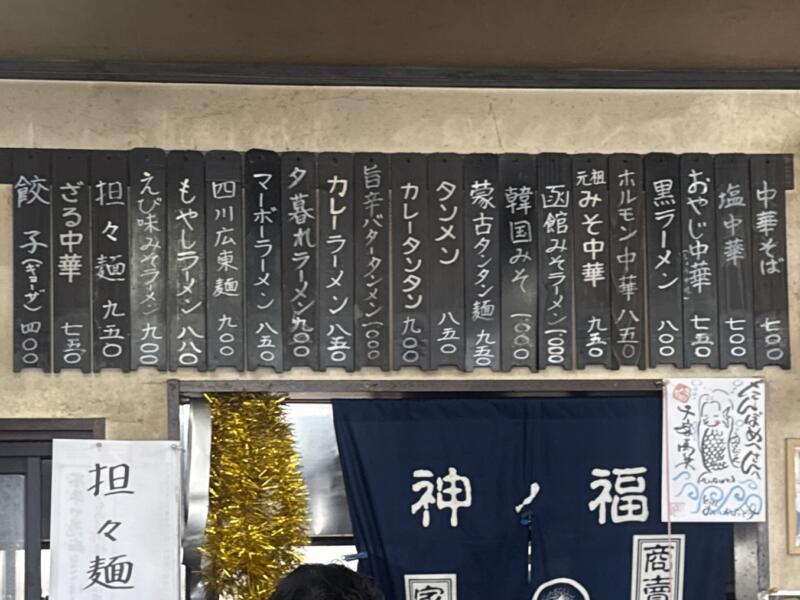 中華そば 七〇〇
塩中華 七〇〇
おやじ中華 七五〇
黒ラーメン 八〇〇
ホルモン中華 八五〇
元祖みそ中華 九五〇
函館みそラーメン 一〇〇〇
韓国みそ 一〇〇〇
蒙古タンタン麺 九五〇
タンメン 八五〇
カレータンタン 九〇〇
旨辛バタータンメン 一〇〇〇
カレーラーメン 八五〇
夕暮れラーメン 九〇〇
マーボーラーメン 八五〇
四川広東麺 九〇〇
もやしラーメン 八八〇
えび味みそラーメン 九〇〇
担々麺 九五〇
ざる中華 七五〇
餃子(ギョーザ) 四〇〇
福ノ神
商売
家
担々麺